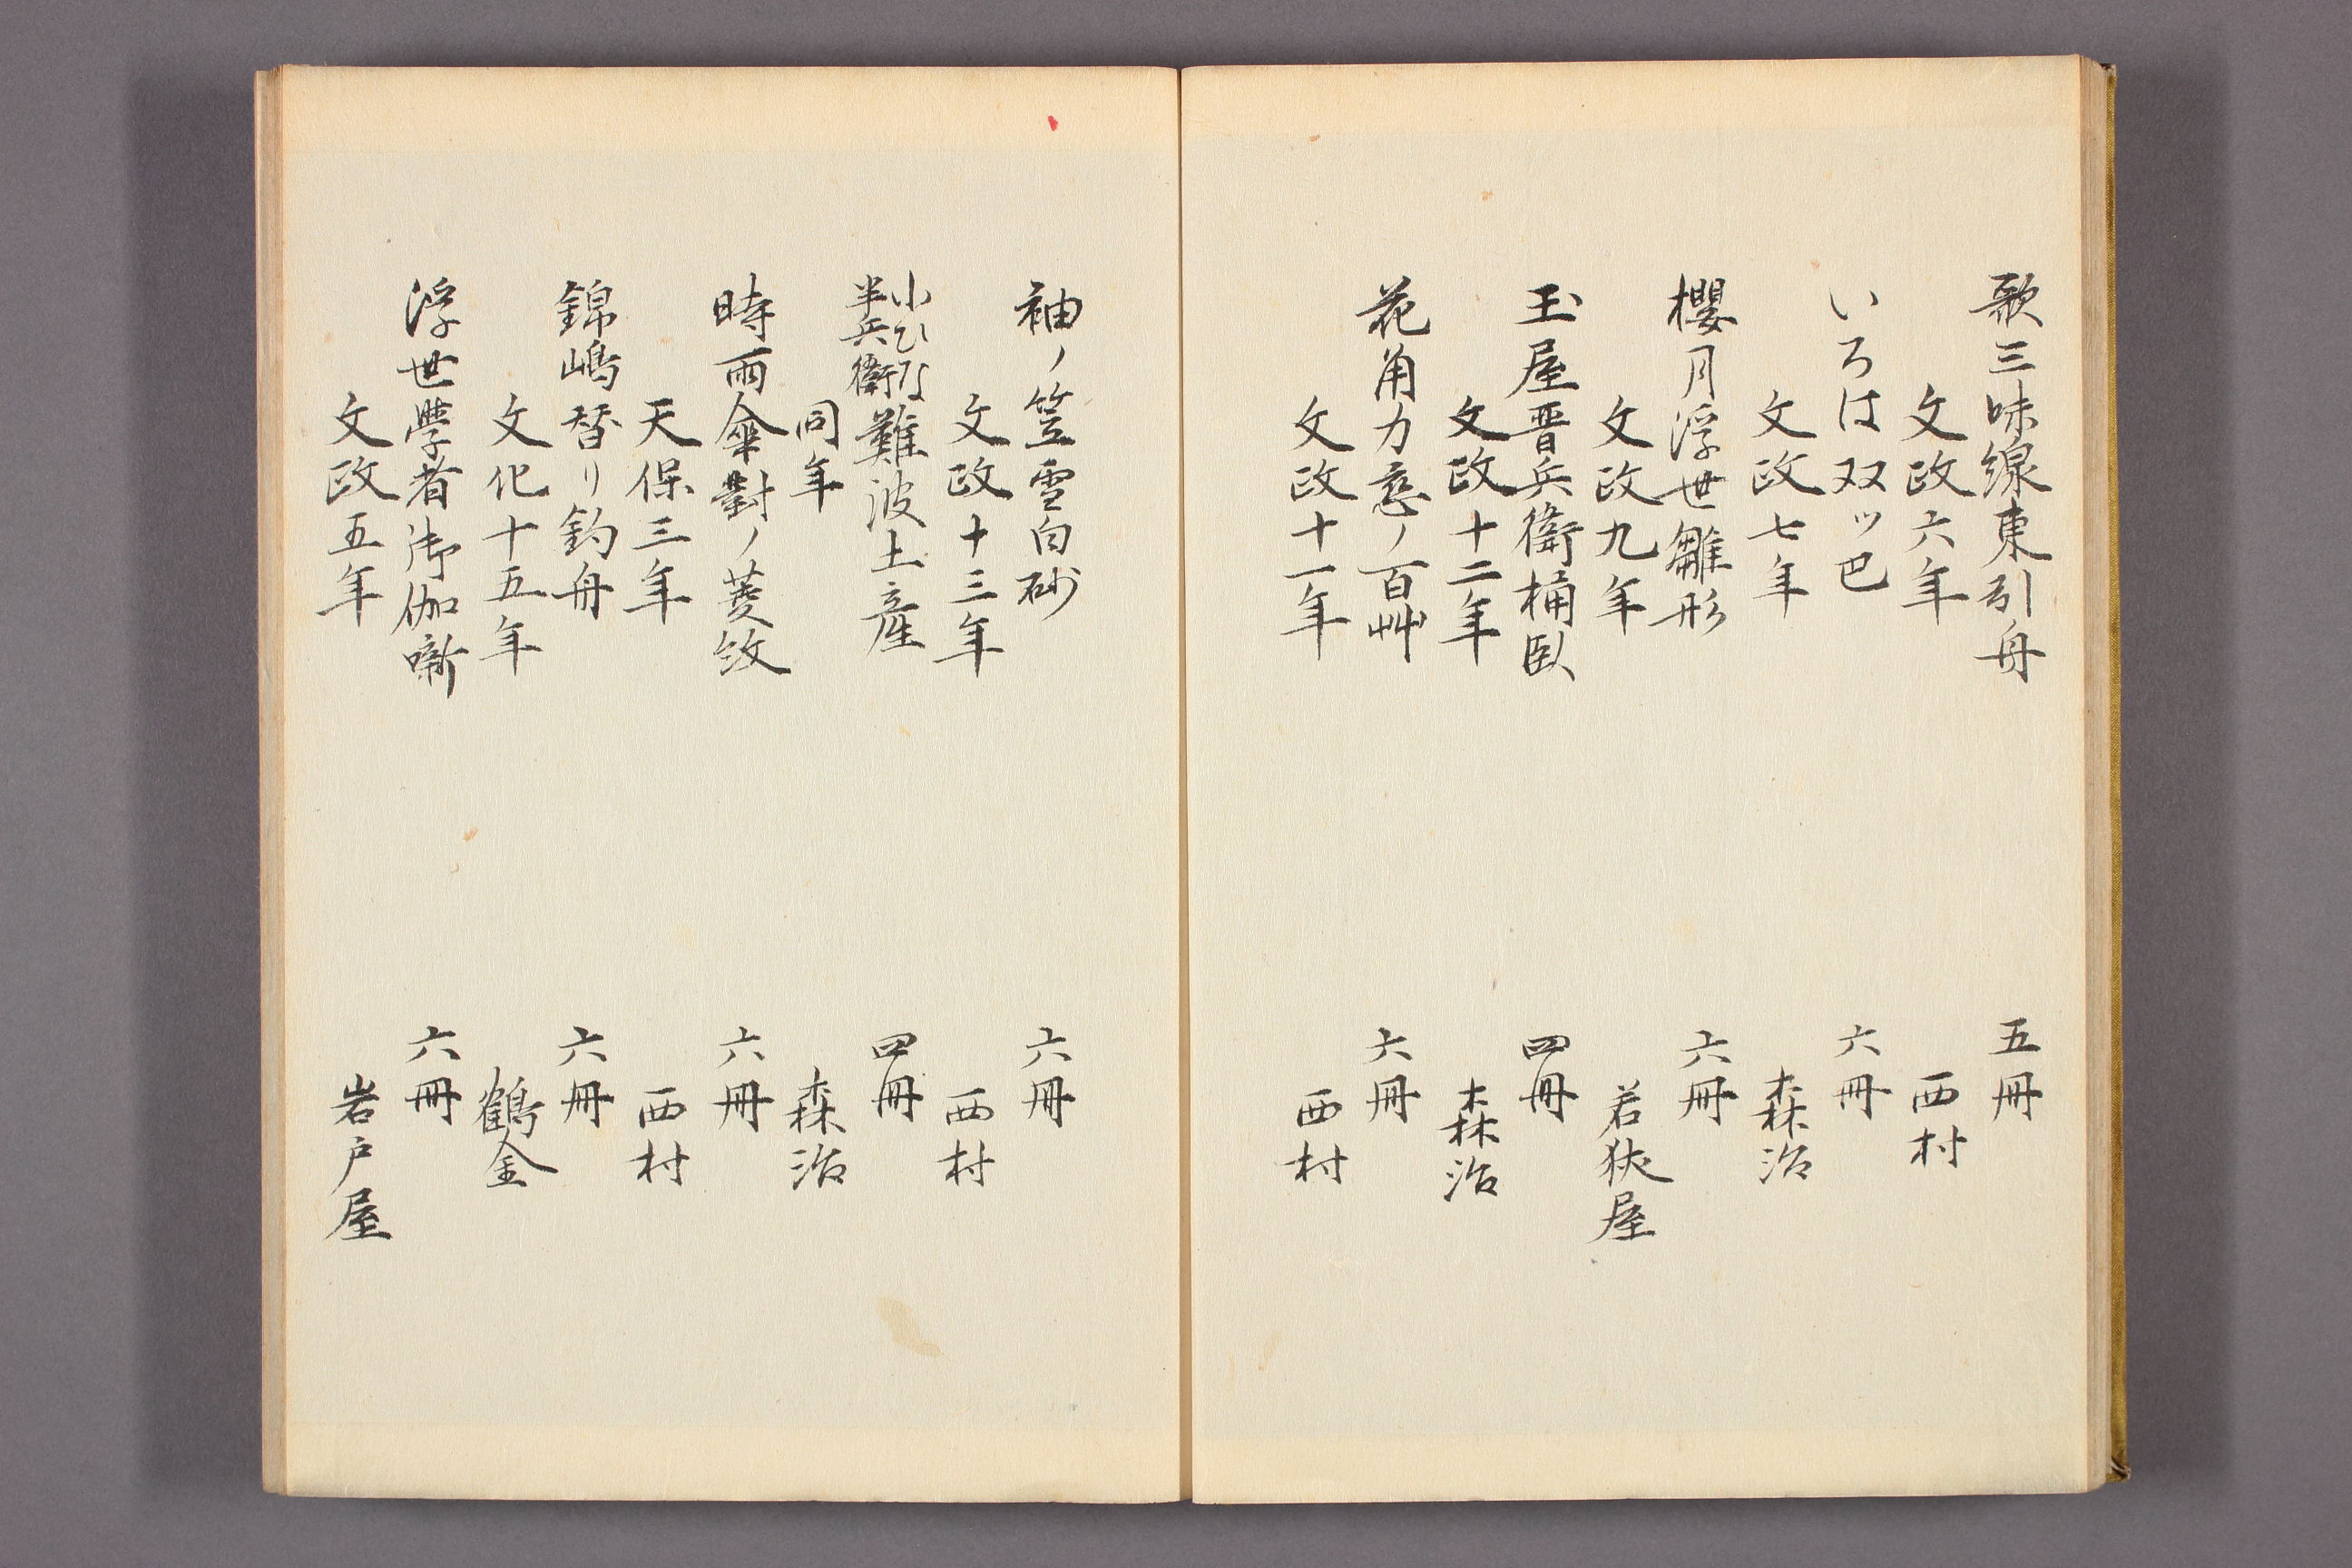 歌三味線東引舟 五冊
文政六年 西村
いろは双ッ巴 六冊
文政七年 森治
櫻月浮世雛形 六冊
文政九年 若狹屋
玉屋晋兵衛桶臥 四冊
文政十二年 森治
花角力恋ノ百艸 六冊
文政十一年 西村
袖ノ笠雪白砂 六冊
文政十三年 西村
小ひな
半兵衛 難波土産 四冊
同年 森治
時雨傘對ノ菱紋 六冊
天保三年 西村
錦嶋替り釣舟 六冊
文化十五年 鶴金
浮世學者御伽噺 六冊
文政五年 岩戸屋